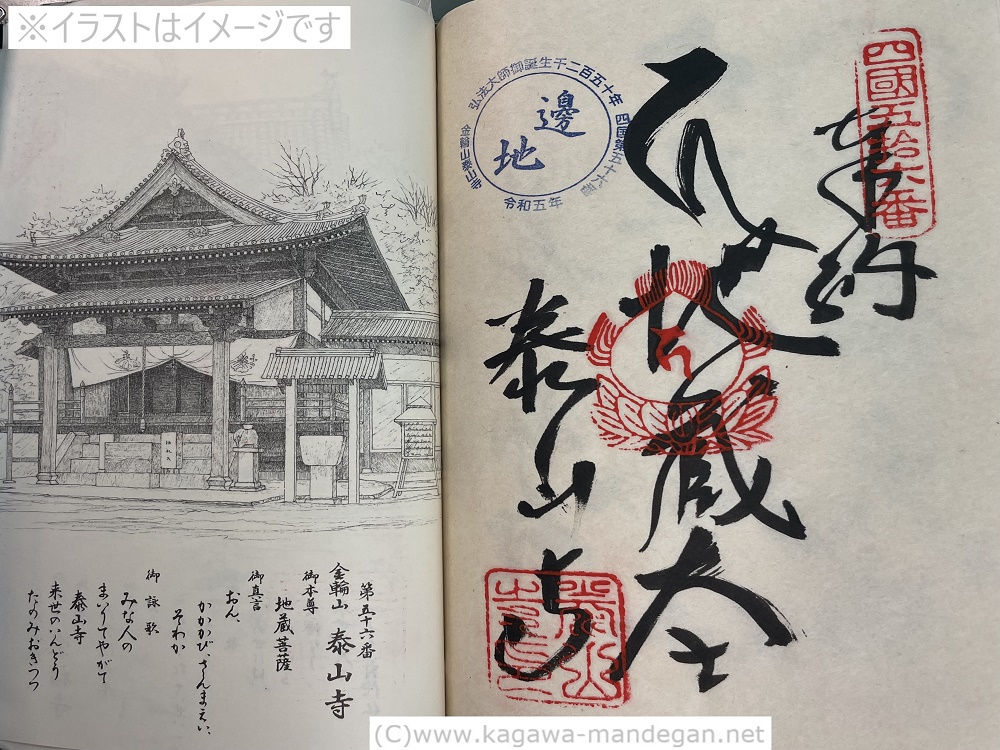 ※イラストはイメージです
四國五拾六番
奉納
地蔵大士
泰山寺
弘法大師御誕生千二百五十年
四国第五十六番
令和五年
金輪山泰山寺
邊地
第五十六番
金輪山 泰山寺
御本尊
地蔵菩薩
御真言
おん、
かかかび、さんまえい、
そわか
御詠歌
みな人の
まいりてやがて
泰山寺
来世のいんどう
たのみおきつつ
(C)www.kagawa-mandegan.net